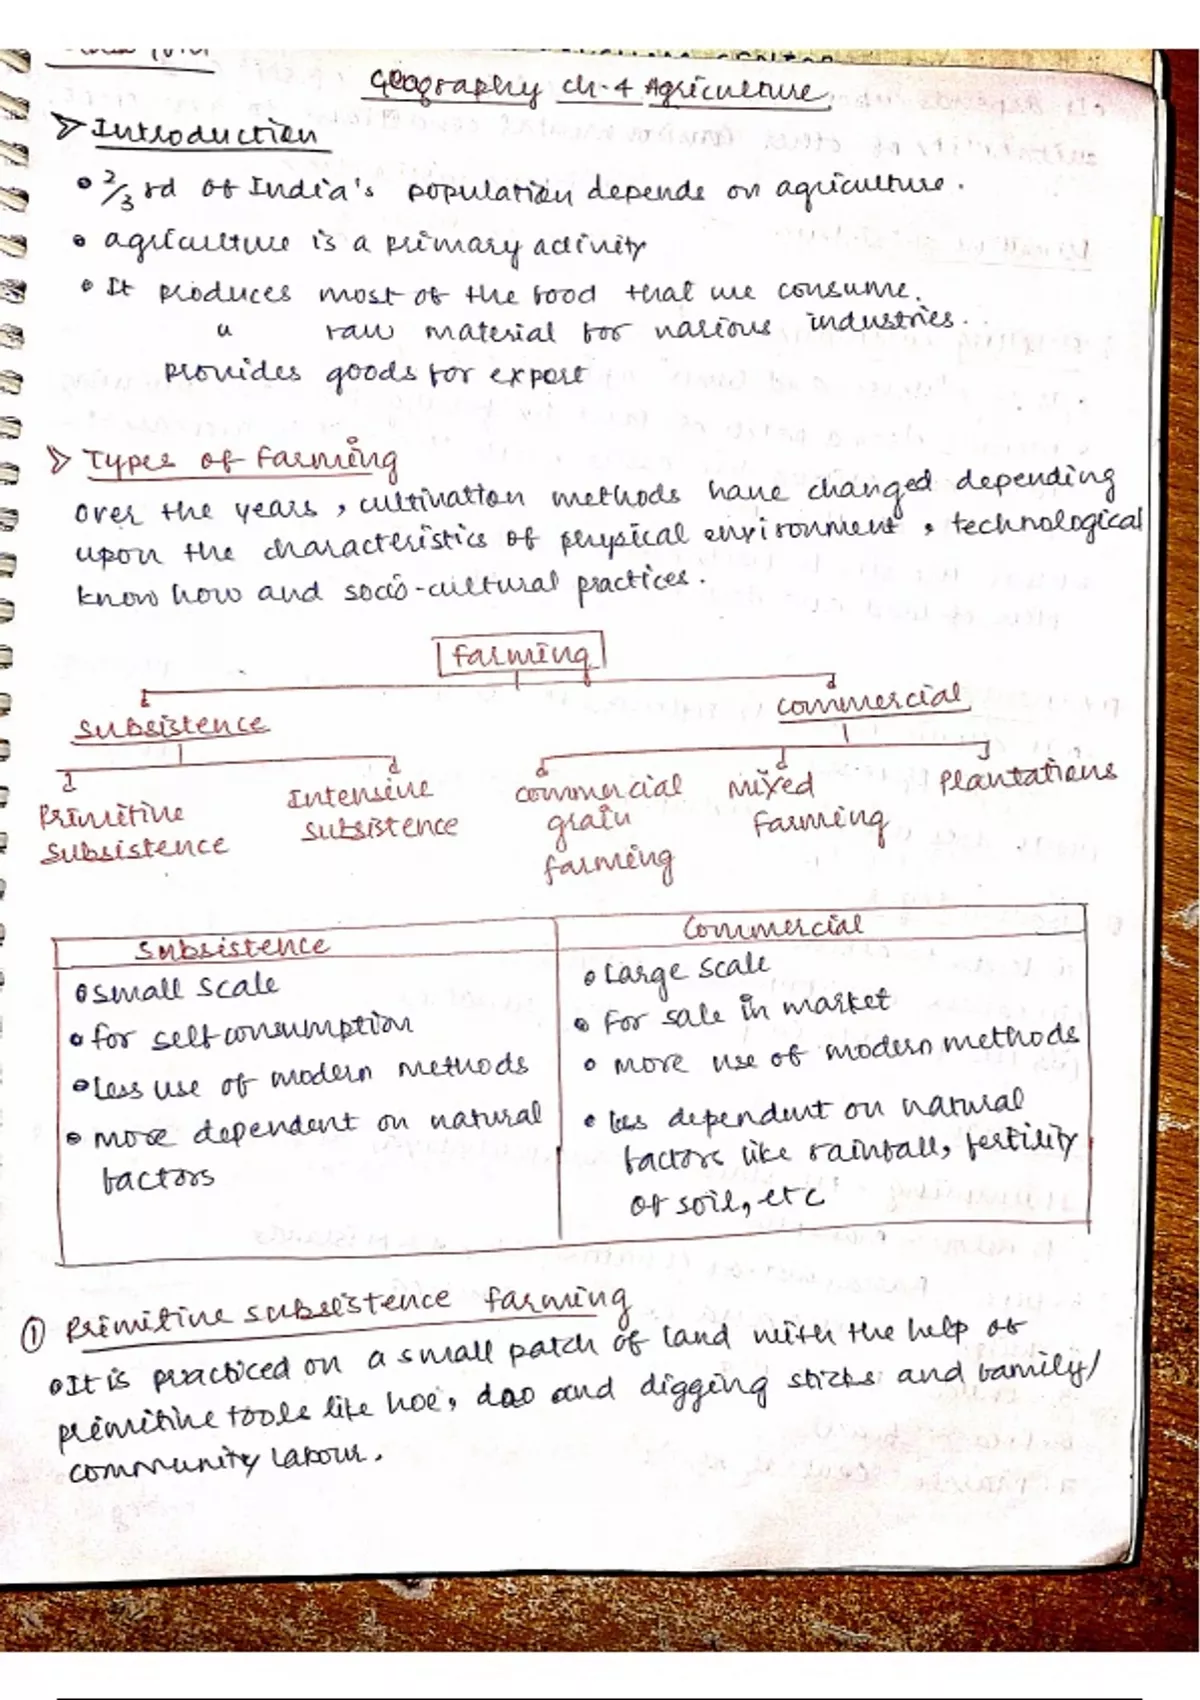 Geography ch-4 Agriculture
Introduction
2/3 rd of India's population depends on agriculture.
agriculture is a primary activity
It produces most of the food that we consume.
" raw material for various industries.
provides goods for export
Types of farming
Over the years, cultivation methods have changed depending
upon the characteristics of physical environment, technological
know how and socio-cultural practices.
farming
Subsistence
commercial
Primitive
Subsistence
Intensive
subsistence
commercial
grain
farming
mixed
farming
Plantations
Subsistence
Commercial
Small scale
for self consumption
Less use of modern methods
more dependent on natural
factors
Large scale
For sale in market
more use of modern methods
less dependent on natural
factors like rainfall, fertility
of soil, etc
① Primitive subsistence farming
It is practiced on a small patch of land with the help of
primitive tools like hoe, dao and digging sticks and family/
community labour.